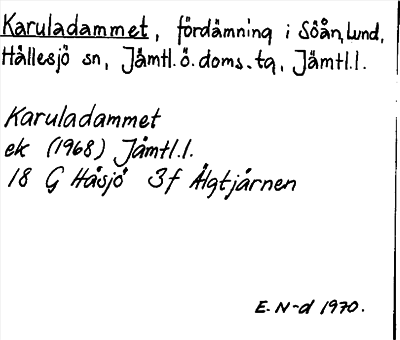 Karuladammet, fördämning i Söån, Lund,
Hällesjö sn, Jämtl.ö.doms.tg, Jämtl.l.
Karuladammet
ek (1968) Jämtl.l.
18 G Håsjö 3f Älgtjärnen
E.N-d 1970.